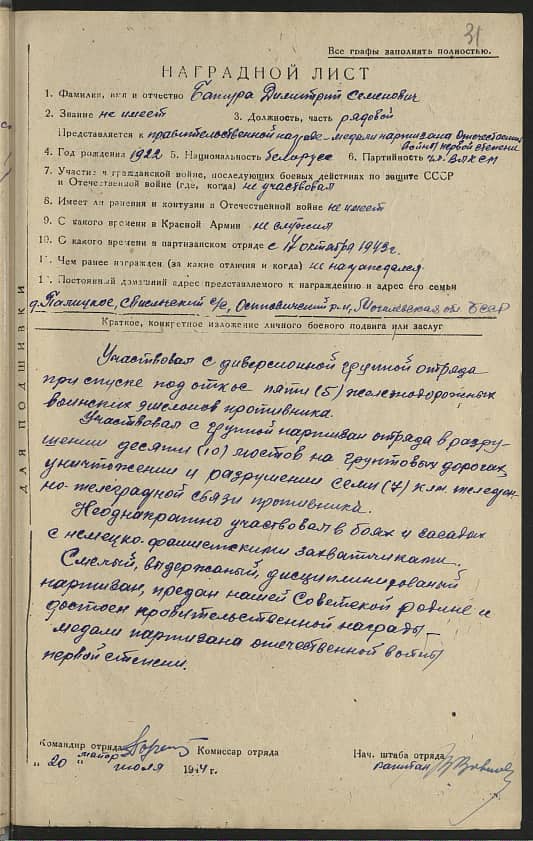 31
Все графы заполнять полностью.
НАГРАДНОЙ ЛИСТ
1. Фамилия, имя и отчество Бапура Димитрий Семенович
2. Звание не имеет 3. Должность, часть рядовой
Представляется к правительственной награде - медали партизана Отечественной
войны первой степени
4. Год рождения 1922 5. Национальность белорусс 6. Партийность чл. ВЛКСМ
7. Участие в гражданской войне, последующих боевых действиях по защите СССР
и Отечественной войне (где, когда) не участвовал
8. Имеет ли ранения и контузии в Отечественной войне не имеет
9. С какого времени в Красной Армии не служил
10. С какого времени в партизанском отряде с 17 октября 1943 г.
11. Чем ранее награжден (за какие отличия и когда) не награждался
12. Постоянный домашний адрес представляемого к награждению и адрес его семьи
д. Свислочский с/с, Осиповичский р-н, Могилевская обл. БССР
Краткое, конкретное изложение личного боевого подвига или заслуг
Участвовал с диверсионной группой отряда
при спуске под откос пяти (5) железнодорожных
воинских эшелонов противника.
Участвовал с группой партизан отряда в разру-
шении десяти (10) мостов на грунтовых дорогах,
уничтожении и разрушении семи (7) клм. телефон-
но-телеградной связи противника.
Неоднократно участвовал в боях и засадах
с немецко-фашистскими захватчиками.
Смелый, выдержаный, дисциплинированый
партизан, предан нашей Советской родине и
достоен правительственной награды -
медали партизана отечественной войны
первой степени.
Командир отряда Комиссар отряда Нач. штаба отряда
майор капитан
„ 20 " июля 1944 г.
ДЛЯ ПОДШИВКИ